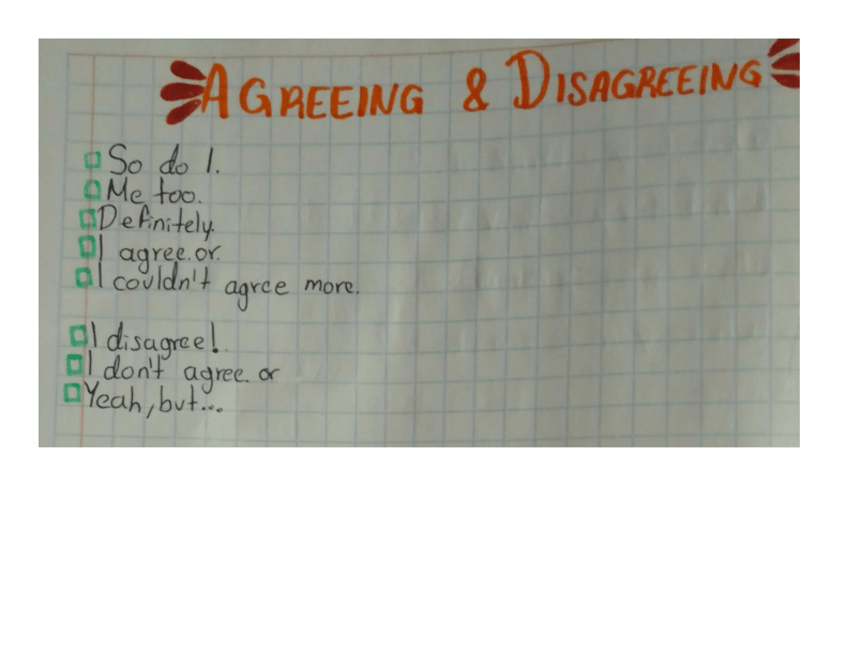 AGREEING & DISAGREEING
So do I.
Me too.
Definitely.
I agree. or.
I couldn't agree more.
I disagree!
I don't agree. or
Yeah, but...